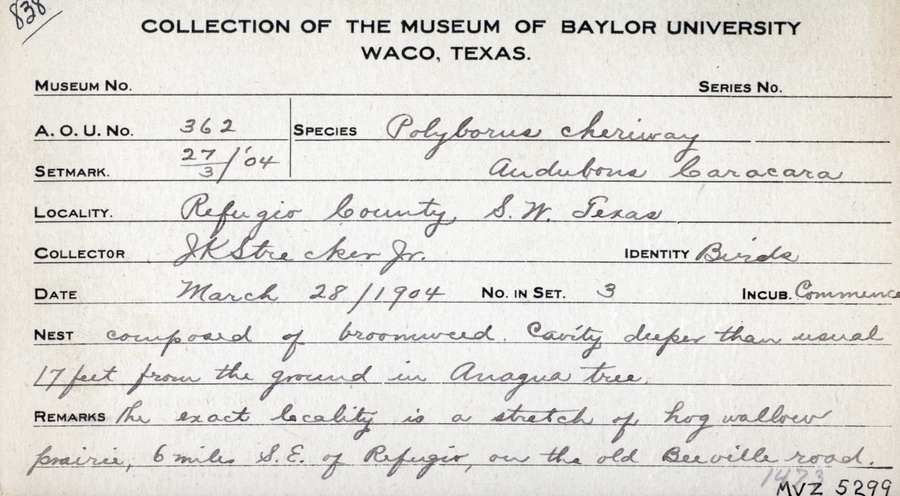 838
COLLECTION OF THE MUSEUM OF BAYLOR UNIVERSITY
WACO, TEXAS.
MUSEUM NO. SERIES NO.
A. O. U. NO. 362 SPECIES Polyborus cheriway
SETMARK. 27/3/'04 Audubons Caracara
LOCALITY. Refugio County S. W. Texas
COLLECTOR JKStrecker Jr. IDENTITY Birds
DATE March 28/1904 NO. IN SET. 3 INCUB. Commence
NEST composed of broomweed. Cavity deeper than usual
17 feet from the ground in Anagua tree.
REMARKS The exact locality is a stretch of hog wallow
prairie, 6 miles S.E. of Refugio, on the old Beeville road.
1473
MVZ 5299